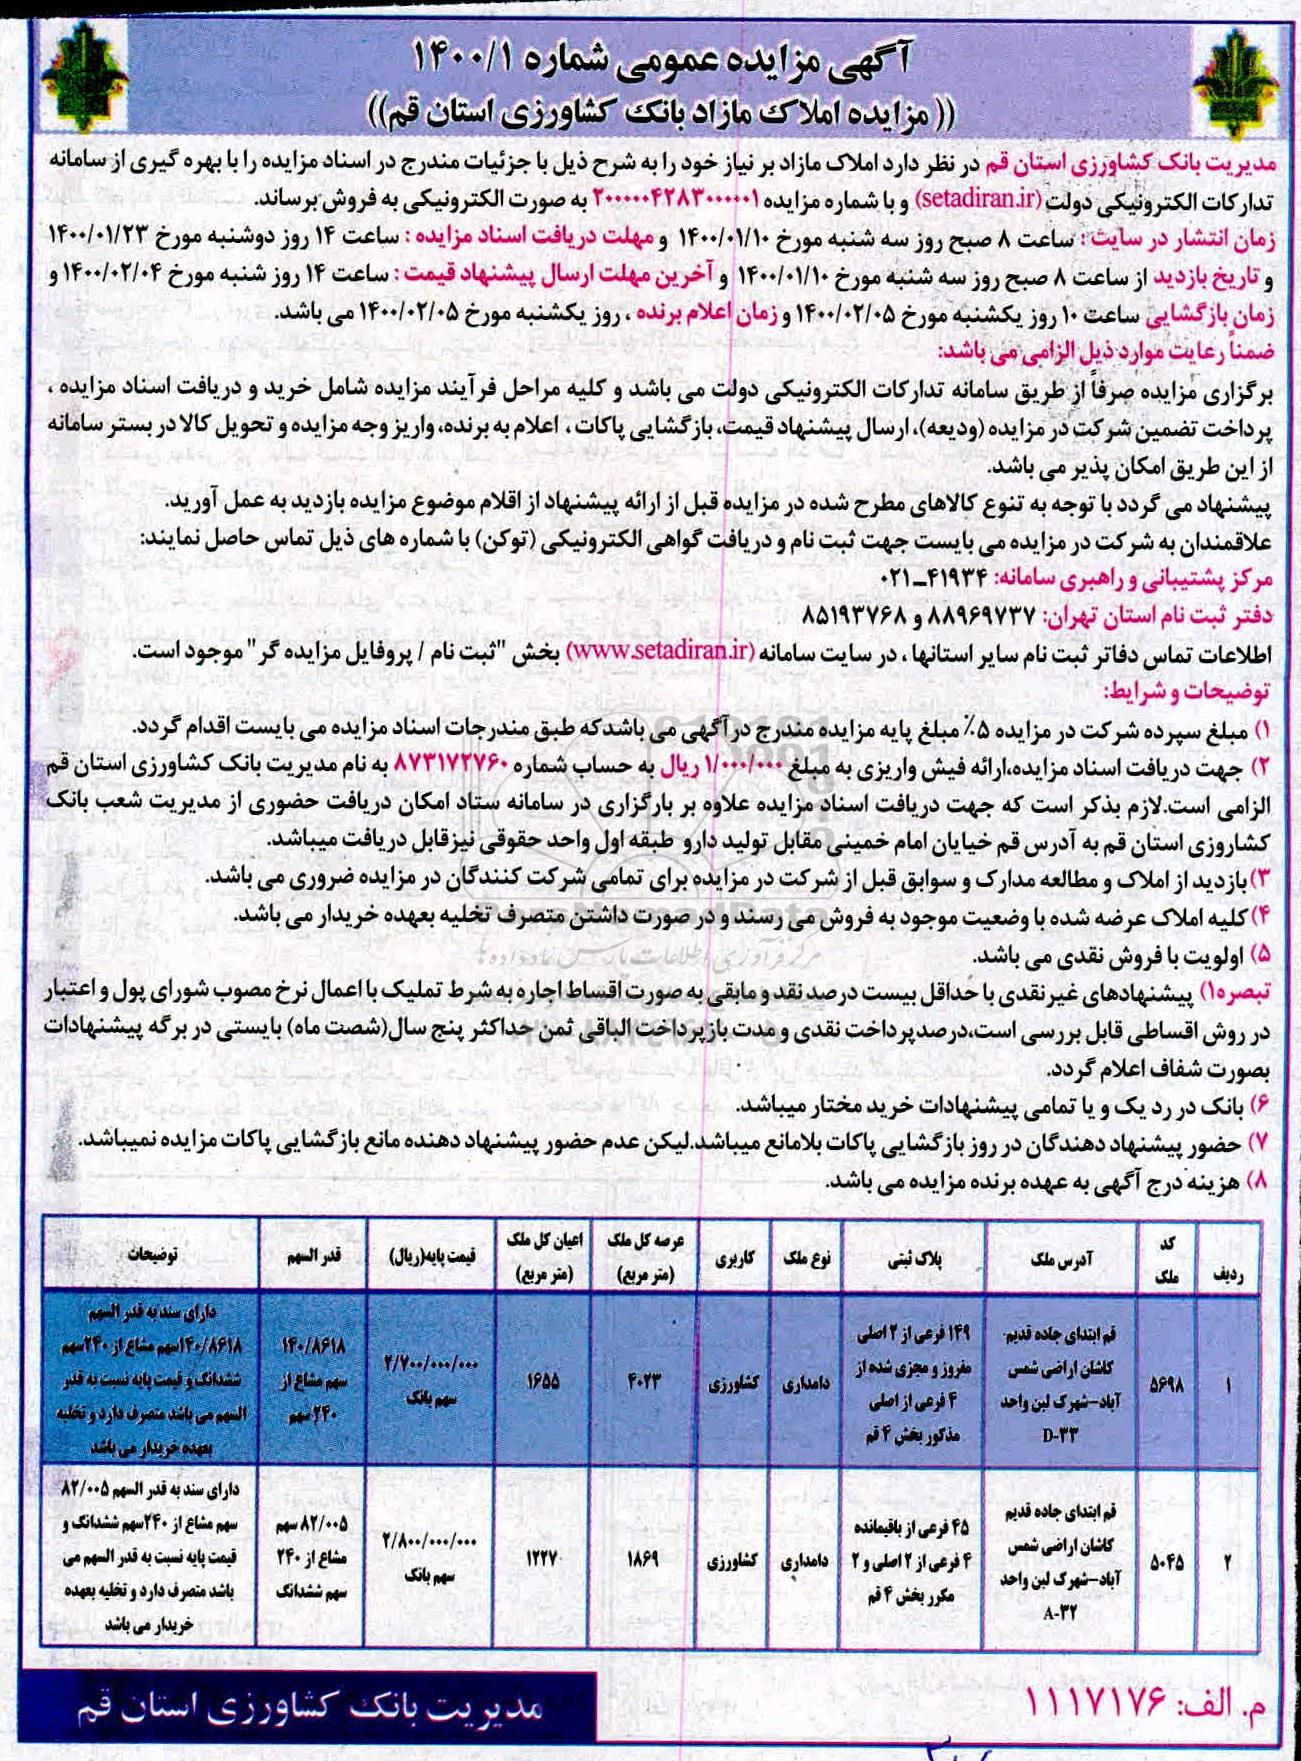 آگهی مزایده عمومی شماره ۱۴۰۰/۱
((مزایده املاک مازاد بانک کشاورزی استان قم))
مدیریت بانک کشاورزی استان قم در نظر دارد املاک مازاد بر نیاز خود را به شرح ذیل با جزئیات مندرج در اسناد مزایده را با بهره گیری از سامانه
تدارکات الکترونیکی دولت (setadiran.ir) و با شماره مزایده ۲۰۰۰۰۰۴۲۸۳۰۰۰۰۰۱ به صورت الکترونیکی به فروش برساند.
زمان انتشار در سایت : ساعت ۸ صبح روز سه شنبه مورخ ۱۴۰۰/۰۱/۱۰ و مهلت دریافت اسناد مزایده : ساعت ۱۴ روز دوشنبه مورخ ۱۴۰۰/۰۱/۲۳
و تاریخ بازدید از ساعت ۸ صبح روز سه شنبه مورخ ۱۴۰۰/۰۱/۱۰ و آخرین مهلت ارسال پیشنهاد قیمت : ساعت ۱۴ روز شنبه مورخ ۱۴۰۰/۰۲/۰۴ و
زمان بازگشایی ساعت ۱۰ روز یکشنبه مورخ ۱۴۰۰/۰۲/۰۵ و زمان اعلام برنده ، روز یکشنبه مورخ ۱۴۰۰/۰۲/۰۵ می باشد.
ضمناً رعایت موارد ذیل الزامی می باشد:
برگزاری مزایده صرفاً از طریق سامانه تدارکات الکترونیکی دولت می باشد و کلیه مراحل فرآیند مزایده شامل خرید و دریافت اسناد مزایده ،
پرداخت تضمین شرکت در مزایده (ودیعه)، ارسال پیشنهاد قیمت، بازگشایی پاکات ، اعلام به برنده، واریز وجه مزایده و تحویل کالا در بستر سامانه
از این طریق امکان پذیر می باشد.
پیشنهاد می گردد با توجه به تنوع کالاهای مطرح شده در مزایده قبل از ارائه پیشنهاد از اقلام موضوع مزایده بازدید به عمل آورید.
علاقمندان به شرکت در مزایده می بایست جهت ثبت نام و دریافت گواهی الکترونیکی (توکن) با شماره های ذیل تماس حاصل نمایند:
مرکز پشتیبانی و راهبری سامانه: ۴۱۹۳۴-۰۲۱
دفتر ثبت نام استان تهران: ۸۸۹۶۹۷۳۷ و ۸۵۱۹۳۷۶۸
اطلاعات تماس دفاتر ثبت نام سایر استانها ، در سایت سامانه (www.setadiran.ir) بخش "ثبت نام / پروفایل مزایده گر" موجود است.
توضیحات و شرایط:
۱) مبلغ سپرده شرکت در مزایده ۵٪ مبلغ پایه مزایده مندرج درآگهی می باشدکه طبق مندرجات اسناد مزایده می بایست اقدام گردد.
۲) جهت دریافت اسناد مزایده،ارائه فیش واریزی به مبلغ ۱/۰۰۰/۰۰۰ ریال به حساب شماره ۸۷۳۱۷۲۷۶۰ به نام مدیریت بانک کشاورزی استان قم
الزامی است.لازم بذکر است که جهت دریافت اسناد مزایده علاوه بر بارگزاری در سامانه ستاد امکان دریافت حضوری از مدیریت شعب بانک
کشاورزی استان قم به آدرس قم خیابان امام خمینی مقابل تولید دارو طبقه اول واحد حقوقی نیزقابل دریافت میباشد.
۳) بازدید از املاک و مطالعه مدارک و سوابق قبل از شرکت در مزایده برای تمامی شرکت کنندگان در مزایده ضروری می باشد.
۴) کلیه املاک عرضه شده با وضعیت موجود به فروش می رسند و در صورت داشتن متصرف تخلیه بعهده خریدار می باشد.
۵) اولویت با فروش نقدی می باشد.
تبصره۱) پیشنهادهای غیرنقدی با حداقل بیست درصد نقد و مابقی به صورت اقساط اجاره به شرط تملیک با اعمال نرخ مصوب شورای پول و اعتبار
در روش اقساطی قابل بررسی است،درصدپرداخت نقدی و مدت بازپرداخت الباقی ثمن حداکثر پنج سال(شصت ماه) بایستی در برگه پیشنهادات
بصورت شفاف اعلام گردد.
۶) بانک در رد یک و یا تمامی پیشنهادات خرید مختار میباشد.
۷) حضور پیشنهاد دهندگان در روز بازگشایی پاکات بلامانع میباشد.لیکن عدم حضور پیشنهاد دهنده مانع بازگشایی پاکات مزایده نمیباشد.
۸) هزینه درج آگهی به عهده برنده مزایده می باشد.
ردیف | کد ملک | آدرس ملک | پلاک ثبتی | نوع ملک | کاربری | عرصه کل ملک (متر مربع) | اعیان کل ملک (متر مربع) | قیمت پایه(ریال) | قدر السهم | توضیحات
۱ | ۵۶۹۸ | قم ابتدای جاده قدیم کاشان اراضی شمس آباد-شهرک لبن واحد D-۳۳ | ۱۴۹ فرعی از ۲ اصلی مفروز و مجزی شده از ۴ فرعی از اصلی مذکور بخش ۴ قم | دامداری | کشاورزی | ۴۰۲۳ | ۱۶۵۵ | ۲/۷۰۰/۰۰۰/۰۰۰ سهم بانک | ۱۴۰/۸۶۱۸ سهم مشاع از ۲۴۰ سهم | دارای سند به قدر السهم ۱۴۰/۸۶۱۸سهم مشاع از ۲۴۰سهم ششدانگ و قیمت پایه نسبت به قدر السهم می باشد متصرف دارد و تخلیه بعهده خریدار می باشد
۲ | ۵۰۴۵ | قم ابتدای جاده قدیم کاشان اراضی شمس آباد-شهرک لبن واحد A-۳۲ | ۴۵ فرعی از باقیمانده ۴ فرعی از ۲ اصلی و ۲ مکرر بخش ۴ قم | دامداری | کشاورزی | ۱۸۶۹ | ۱۲۲۷ | ۲/۸۰۰/۰۰۰/۰۰۰ سهم بانک | ۸۲/۰۰۵ سهم مشاع از ۲۴۰ سهم ششدانگ | دارای سند به قدر السهم ۸۲/۰۰۵ سهم مشاع از ۲۴۰سهم ششدانگ و قیمت پایه نسبت به قدر السهم می باشد متصرف دارد و تخلیه بعهده خریدار می باشد
م. الف: ۱۱۱۷۱۷۶
مدیریت بانک کشاورزی استان قم